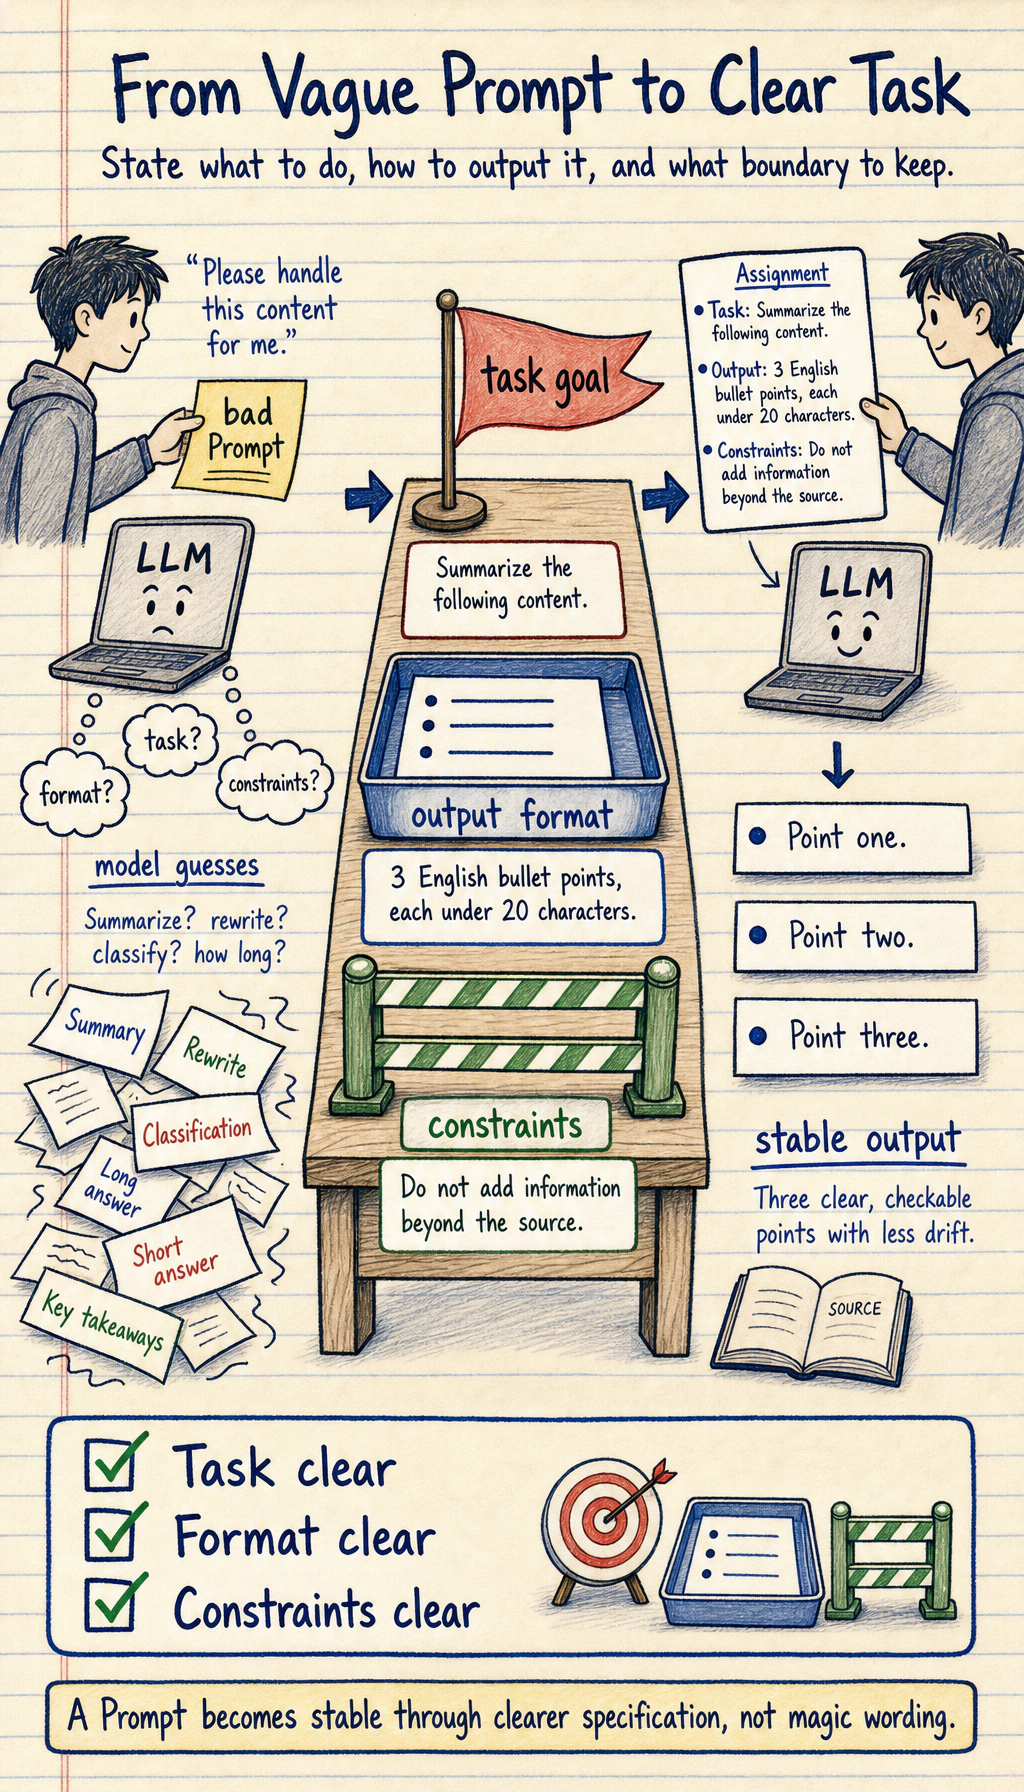 From Vague Prompt to Clear Task
State what to do, how to output it, and what boundary to keep.
“Please handle
this content
for me.”
bad
Prompt
LLM
task?
format?
constraints?
model guesses
Summarize? rewrite?
classify? how long?
Summary
Rewrite
Classification
Long
answer
Short
answer
Key takeaways
task goal
Summarize the
following content.
output format
3 English bullet points,
each under 20 characters.
constraints
Do not add information
beyond the source.
Assignment
• Task: Summarize the
following content.
• Output: 3 English
bullet points, each
under 20 characters.
• Constraints: Do not
add information
beyond the source.
LLM
• Point one.
• Point two.
• Point three.
stable output
Three clear, checkable
points with less drift.
SOURCE
Task clear
Format clear
Constraints clear
A Prompt becomes stable through clearer specification, not magic wording.